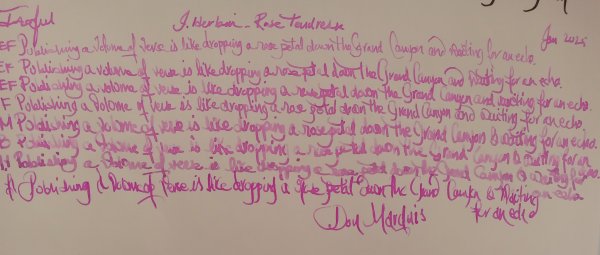 J. Herbin - Rose Tendresse
Jan 2025
EF Publishing a volume of verse is like dropping a rose petal down the Grand Canyon and waiting for an echo.
EF Publishing a volume of verse is like dropping a rose petal down the Grand Canyon and waiting for an echo.
EF Publishing a volume of verse is like dropping a rose petal down the Grand Canyon and waiting for an echo.
F Publishing a volume of verse is like dropping a rose petal down the Grand Canyon and waiting for an echo.
M Publishing a volume of verse is like dropping a rose petal down the Grand Canyon & waiting for an echo.
Publishing a volume of verse is like dropping a rose petal down the Grand Canyon & waiting for an
Publishing a volume of verse is like dropping a rose petal down the Grand Canyon & waiting for an echo.
Publishing a volume of verse is like dropping a rose petal down the Grand Canyon & waiting
for an echo
Don Marquis